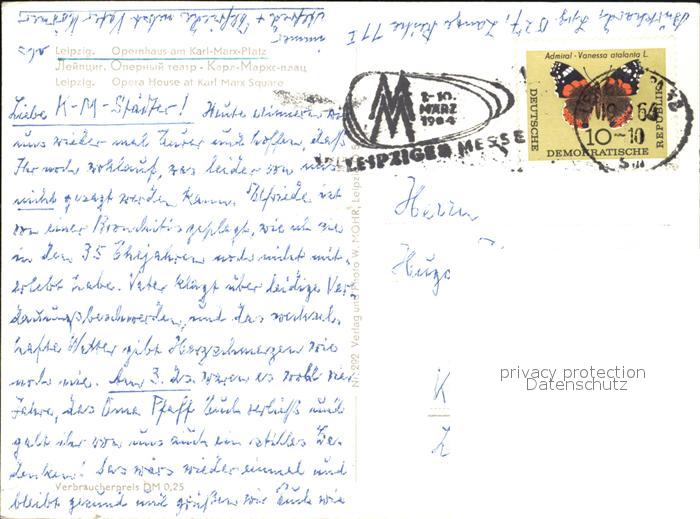 immer Alfred + Elfriede nebst Vater
als
Burkhardt, Lpzg. O 27, Lange Reihe 71 I
Leipzig. Opernhaus am Karl-Marx-Platz
Лейпциг. Оперный театр - Карл-Маркс-плац
Leipzig. Opera House at Karl Marx Square
Liebe K-M-Städter! Heute erinnern wir
uns wieder mal Eurer und hoffen, daß
Ihr noch wohlauf, was leider von uns
nicht gesagt werden kann. Elfriede ist
von einer Bronchitis geplagt, wie ich sie
in den 35 Ehejahren noch nicht mit-
erlebt habe. Vater klagt über leidige Ver-
dauungsbeschwerden, und das wechsel-
hafte Wetter gibt Herzschmerzen wie
noch nie. Am 3. ds. waren es wohl vier
Jahre, das Oma Pfaff Euch verließ und
galt ihr von uns auch ein stilles Ge-
denken! Das wärs wieder einmal und
bleibt gesund und grüßen wir Euch wie
Verbraucherpreis DM 0,25
Nr. 292 Verlag und Photo W. MOHR, Leipzig
MM
1-10.
MÄRZ
1964
LEIPZIGER MESSE
Admiral - Vanessa atalanta L.
DEUTSCHE
DEMOKRATISCHE
REPUBLIK
10+10
64
Herrn
Hugo
K
privacy protection
Datenschutz